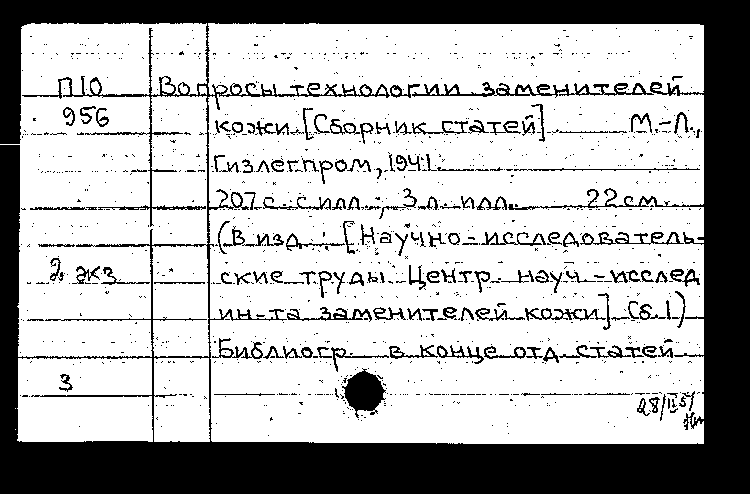 П10 Вопросы технологии заменителей
956 кожи. [Сборник статей] М.-Л.,
Гизлегпром, 1941.
207 с. с илл.; 3 л. илл. 22 см.
(В изд.: [Научно-исследователь-
2 экз ские труды Центр. науч.-исслед
ин-та заменителей кожи] (б. 1)
Библиогр. в конце отд. статей
3
28/II 51